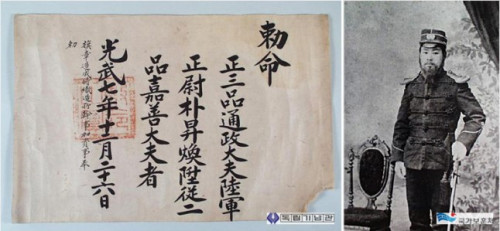 勅命
正三品通政大夫陸軍
正尉朴昇煥陞從二
品嘉善大夫者
光武七年十二月二十六日
독립기념관
국가보훈처